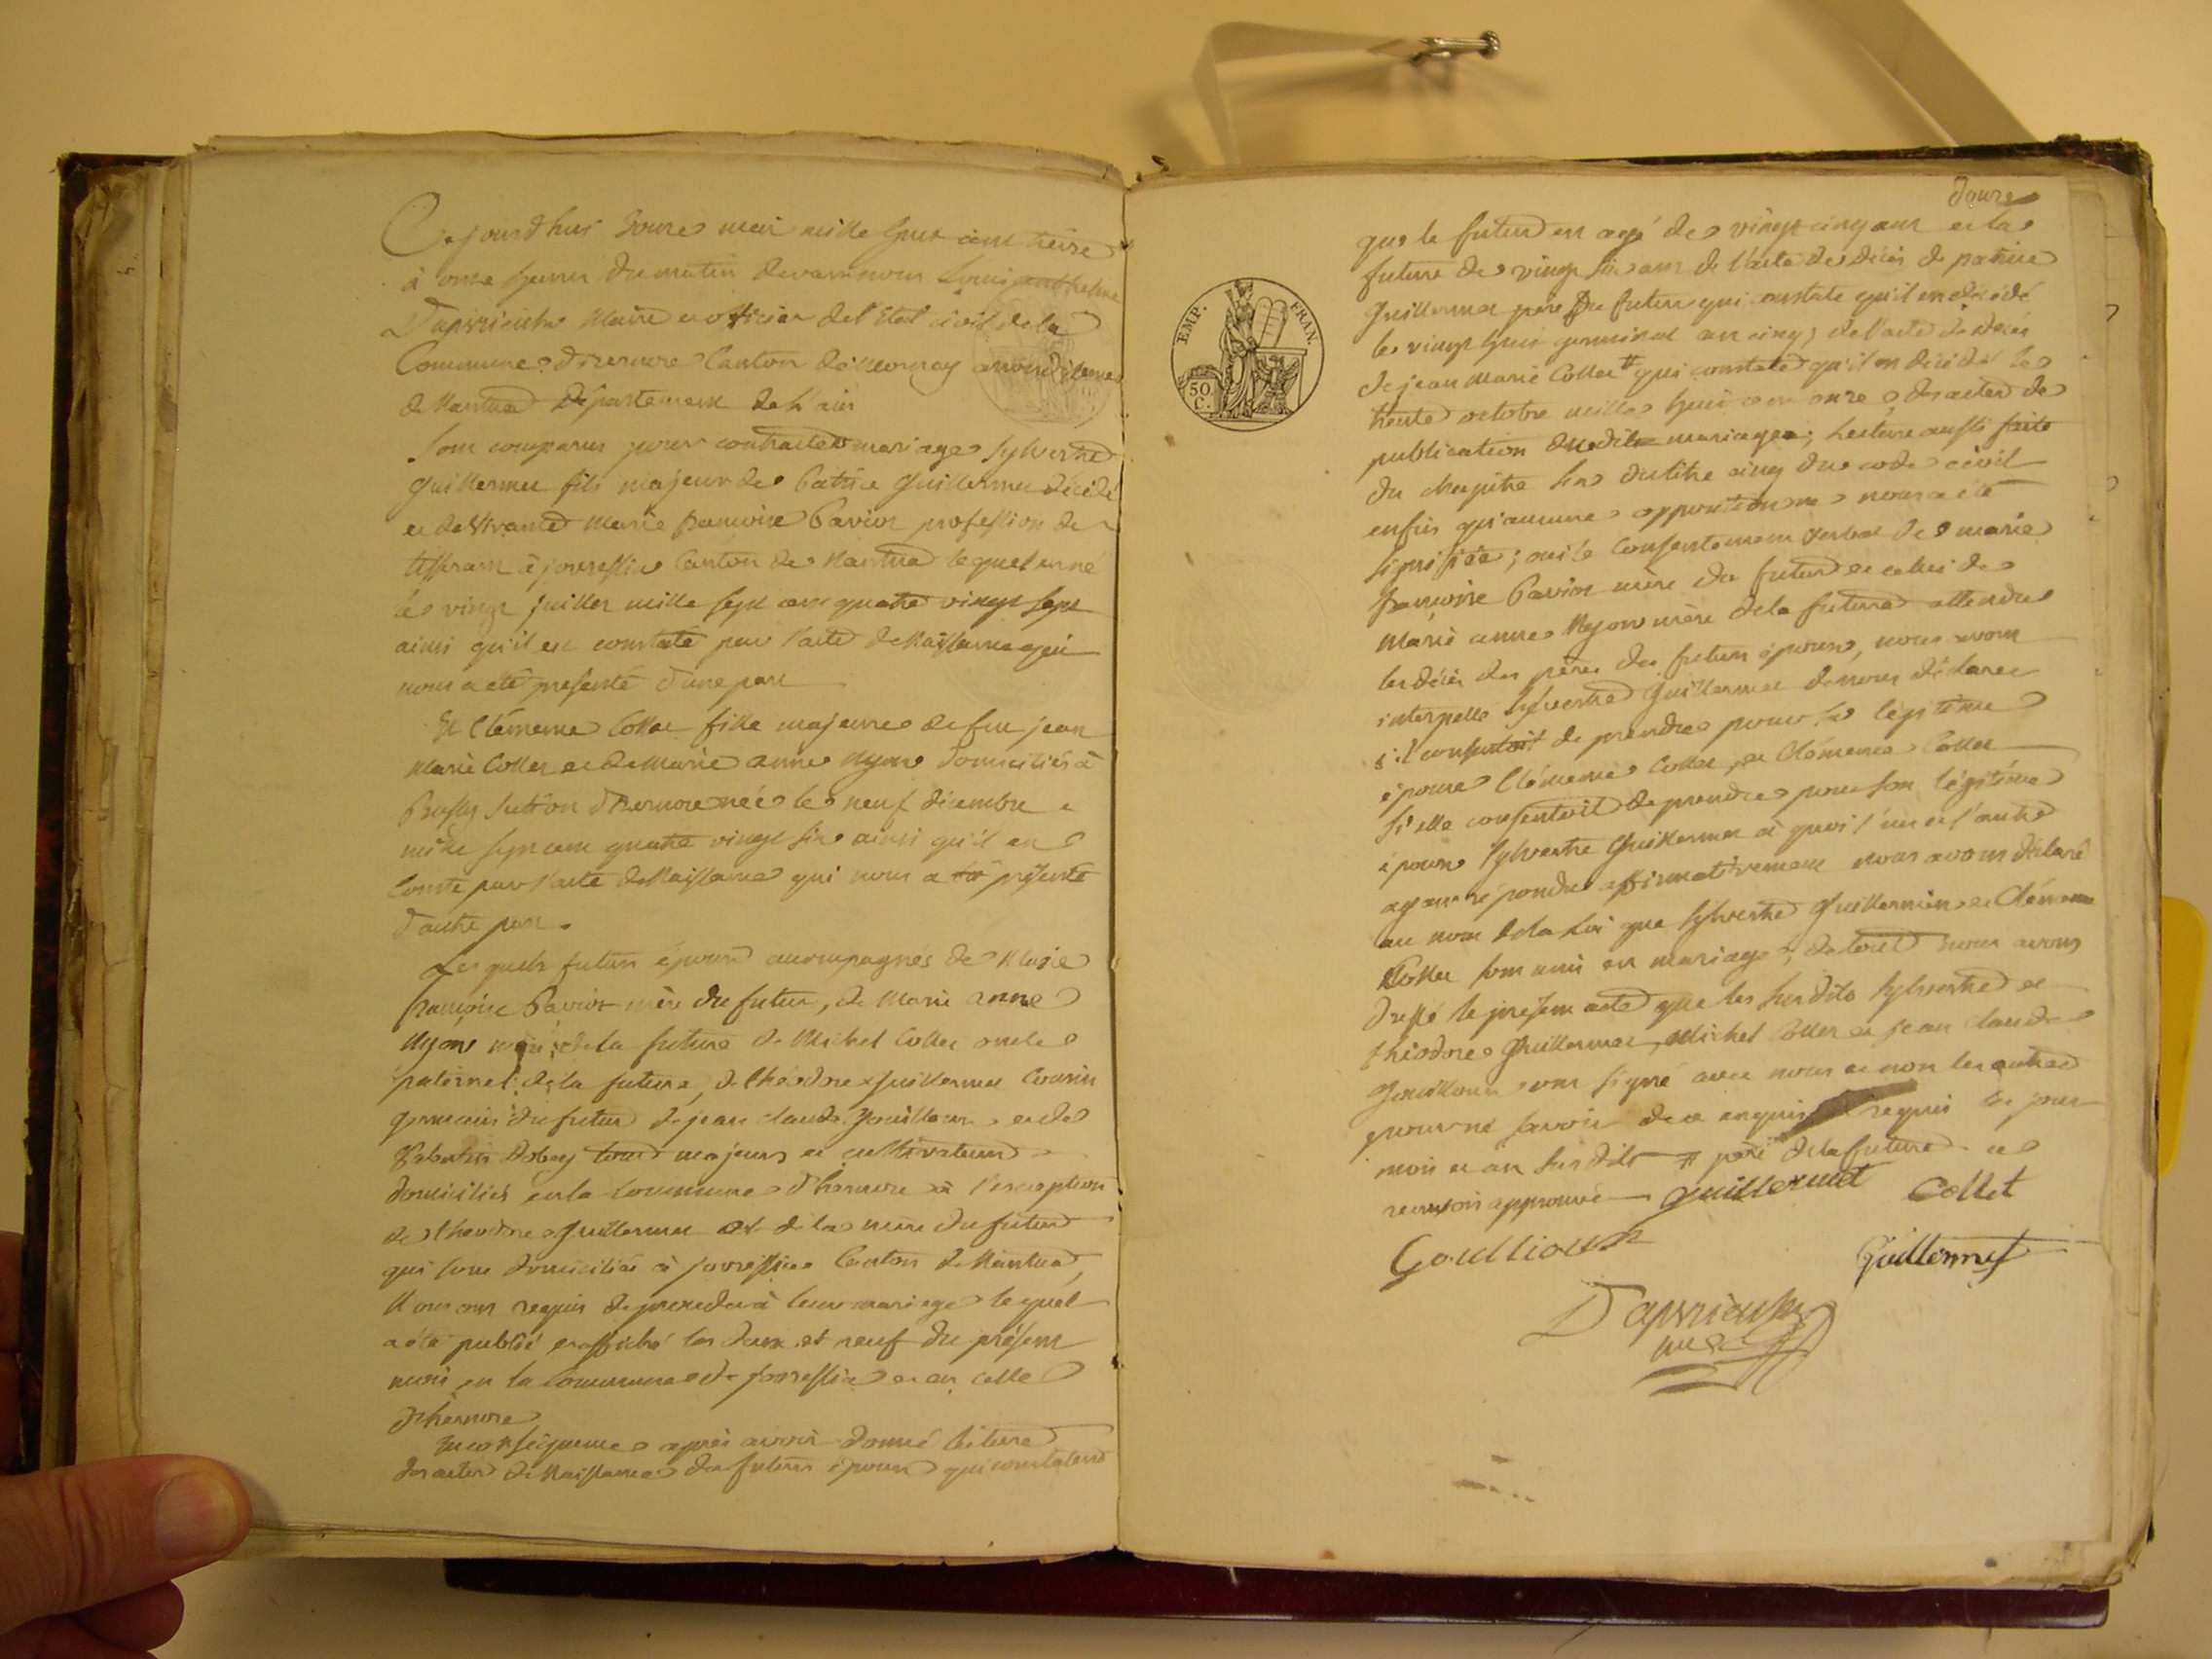 Cejourdhui douze mai mille huit cent treize
à onze heures du matin devant nous Louis
Dapvrieulx Maire et officier del'Etat civil de la
Commune Canton de arrondissement
de Nantua Département de L'ain
Sont comparus pour contracter mariage Sylvestre
Guillermet fils majeur de Patrice Guillermet décédé
et de vivante Marie françoise Pavion profession de
tisseran à Canton de Nantua lequel est né
le vingt juillet mille sept cent quatre vingt sept
ainsi qu'il est constaté par l'acte de Naissance qui
nous a été présenté d'une part
Et Clémence Collet fille majeure de feu jean
Marie Collet et de Marie anne Nyon domiciliés à
section d'hernore née le neuf décembre
mille sept cent quatre vingt six ainsi qu'il en
Conste par l'acte de Naissance qui nous a été présenté
d'autre part.
Lesquels futurs époux accompagnés de Marie
françoise Pavion mère du futur, de Marie anne
Nyon mère de la future de Michel Collet oncle
paternel de la future, de théodore Guillermet Cousin
germain du futur de jean claude Gouilloux et de
tous majeurs et cultivateurs
domiciliés en la Commune d'hernore à l'exception
de theodore Guillermet et de la mère du futur
qui sont domiciliés à Canton de Nantua,
Nous ont requis de procéder à leur mariage lequel
a été publié et affiché les deux et neuf du présent
mois en la Commune de et en celle
d'hernore
En conséquence après avoir donné lecture
des actes de Naissance des futurs époux qui constatent
douze
EMP. FRAN.
50 C.
que le futur est agé de vingt cinq ans et la
future de vingt six ans de l'acte de décès de patrice
Guillermet père du futur qui constate qu'il est décédé
le vingt huit germinal an cinq; de l'acte de décès
de jean Marie Collet # qui constate qu'il est décédé le
trente octobre mille huit cent onze, des actes de
publication dudit mariage; Lecture aussi faite
du chapitre six du titre cinq du code civil
enfin qu'aucune opposition ne nous a été
signifiée; oui le Consentement verbal de marie
françoise Pavion mère du futur et celui de
Marie anne Nyon mère de la future attendu
les décès des pères des futurs époux, nous avons
interpellé Sylvestre Guillermet de nous déclarer
s'il consentoit de prendre pour sa légitime
épouse Clémence Collet, et Clémence Collet
si elle consentoit de prendre pour son légitime
époux Sylvestre Guillermet à quoi l'un et l'autre
ayant répondu affirmativement nous avons déclaré
au nom de la loi que Sylvestre Guillermet et Clémence
Collet sont unis en mariage; de tout nous avons
dressé le présent acte que les susdits Sylvestre et
théodore Guillermet, Michel Collet et jean claude
Gouilloux ont signé avec nous et non les autres
pour ne savoir de ce enquis requis les jour
mois et an susdits # père de la future ce
renvoi approuvé Guillermet Collet
Gouilloux Guillermet
Dapvrieulx